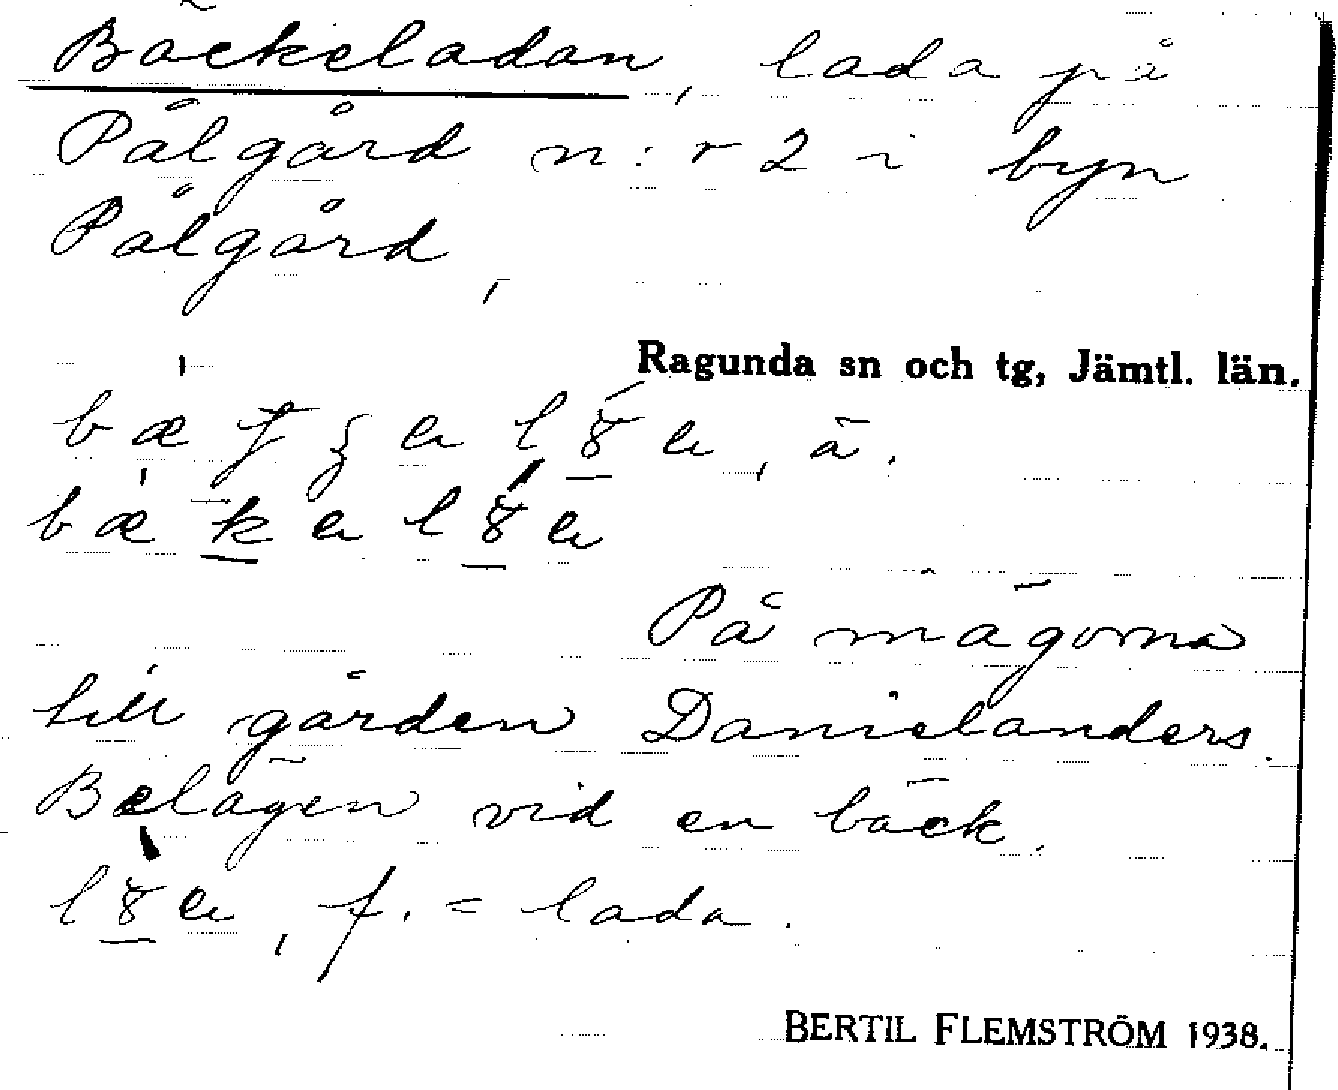 Bäckeladan, lada på
Pålgård n:r 2 i byn
Pålgård,
Ragunda sn och tg, Jämtl. län.
ä.
På mägorna
till gården Danielanders.
Belägen vid en bäck.
f. = lada.
BERTIL FLEMSTRÖM 1938.